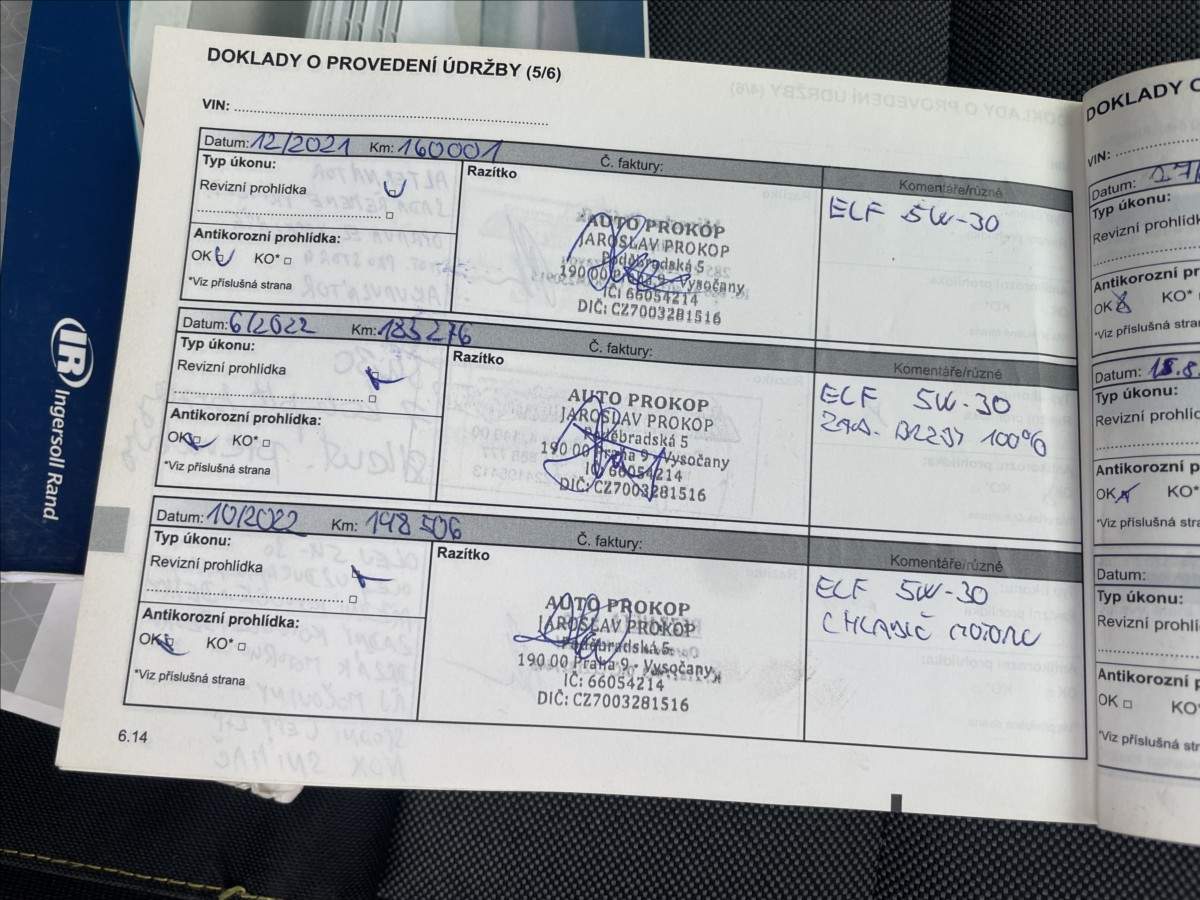 DOKLADY O PROVEDENÍ ÚDRŽBY (5/6)
VIN:
Datum: 12/2021 Km: 160001 Č. faktury:
Typ úkonu:
Revizní prohlídka
Antikorozní prohlídka:
OK KO*
*Viz příslušná strana
Razítko
AUTO PROKOP
JAROSLAV PROKOP
Poděbradská 5
190 00 Praha 9 - Vysočany
IČ: 66054214
DIČ: CZ7003281516
Komentáře/různé
ELF 5W-30
Datum: 6/2022 Km: 183276 Č. faktury:
Typ úkonu:
Revizní prohlídka
Antikorozní prohlídka:
OK KO*
*Viz příslušná strana
Razítko
AUTO PROKOP
JAROSLAV PROKOP
Poděbradská 5
190 00 Praha 9 - Vysočany
IČ: 66054214
DIČ: CZ7003281516
Komentáře/různé
ELF 5W-30
ZAD. BRZDY 100%
Datum: 10/2022 Km: 198506 Č. faktury:
Typ úkonu:
Revizní prohlídka
Antikorozní prohlídka:
OK KO*
*Viz příslušná strana
Razítko
AUTO PROKOP
JAROSLAV PROKOP
Poděbradská 5
190 00 Praha 9 - Vysočany
IČ: 66054214
DIČ: CZ7003281516
Komentáře/různé
ELF 5W-30
CHLADIČ MOTORU
6.14
IR Ingersoll Rand
DOKLADY O
VIN:
Datum:
Typ úkonu:
Revizní prohlí
Antikorozní p
OK KO*
*Viz příslušná stra
Datum: 18.8.
Typ úkonu:
Revizní prohlí
Antikorozní p
OK KO*
*Viz příslušná stra
Datum:
Typ úkonu:
Revizní prohlí
Antikorozní p
OK KO*
*Viz příslušná stra